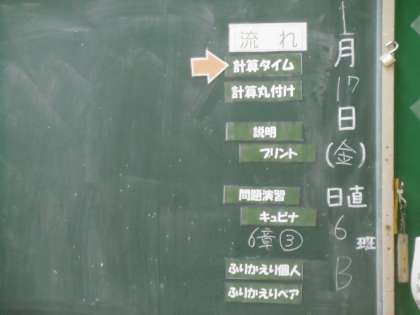 1月17日(金)
日直
6班
B
流れ
計算タイム
計算丸付け
説明
プリント
問題演習
キュビナ
6章③
ふりかえり個人
ふりかえりペア